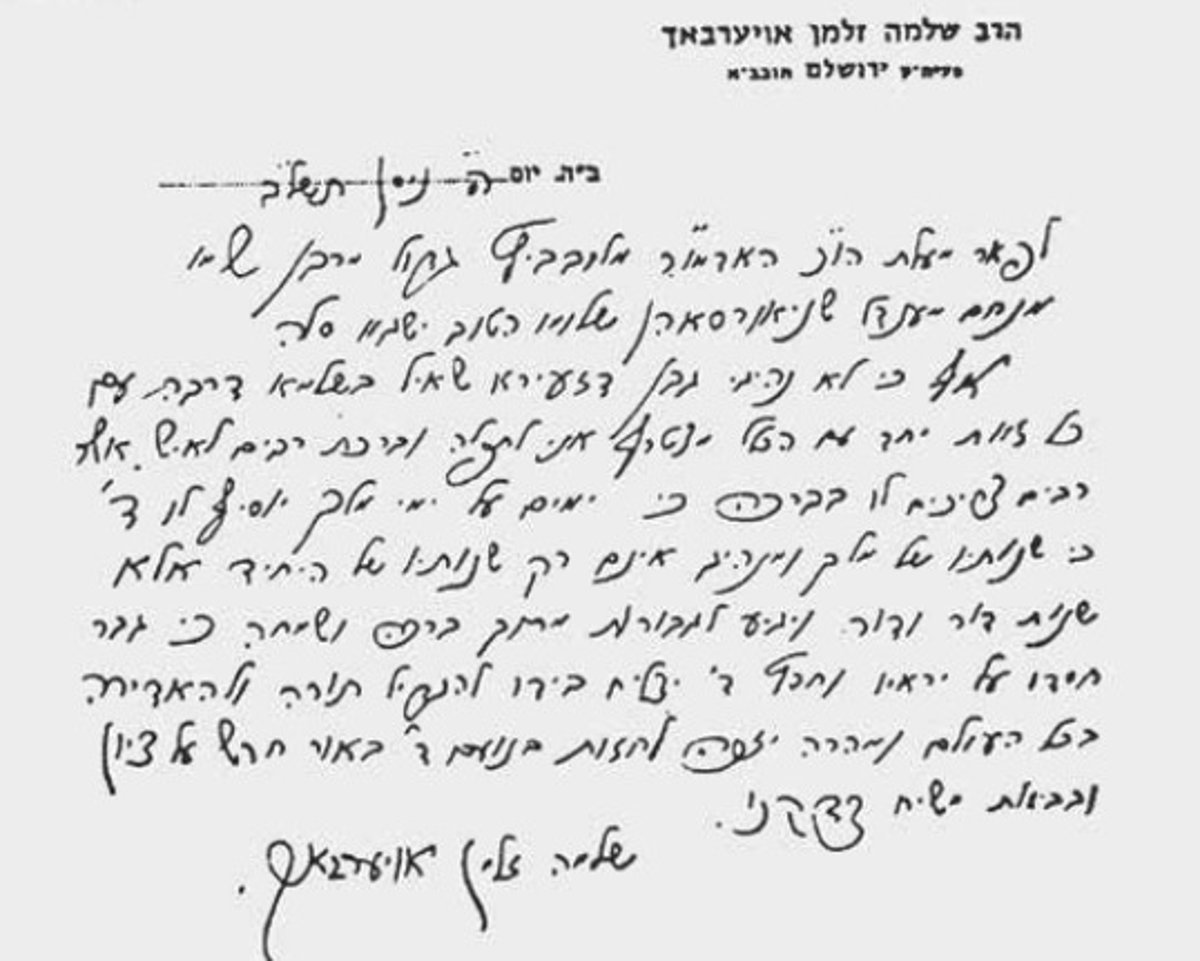 הרב שלמה זלמן אויערבאך
פעיה״ק ירושלם תובב״א
ב״ה. יום ה׳ ניסן תשל״ב
לפאר מעלת הרב האדמו״ר מלובביץ בקול מרבן שמו
מנחם מענדל שניאורסאהן שלומו הטוב ישגיו סלה
אף כי לא נהיגי גבן דזעירא שאיל בשלמא דרבה עם
כל זאת יחד עם הכלל מצטרף אני לתפלה וברכת רבים לאיש אשר
רבים צריכים לו בברכה כי ימים על ימי מלך יוסיף לו ד׳
כי שנותיו של מלך ומנהיג אינם רק שנותיו של היחיד אלא
שנות דור ודור. ויגיע לגבורות מתוך ברכה ושמחה כי גבר
חסדו על יראיו וחפץ ד׳ יצליח בידו להגדיל תורה ולהאדירה
בכל העולם ומהרה יזכה לחזות בנועם ד׳ באור חדש על ציון
ובביאת משיח צדקנו.
שלמה זלמן אויערבאך.